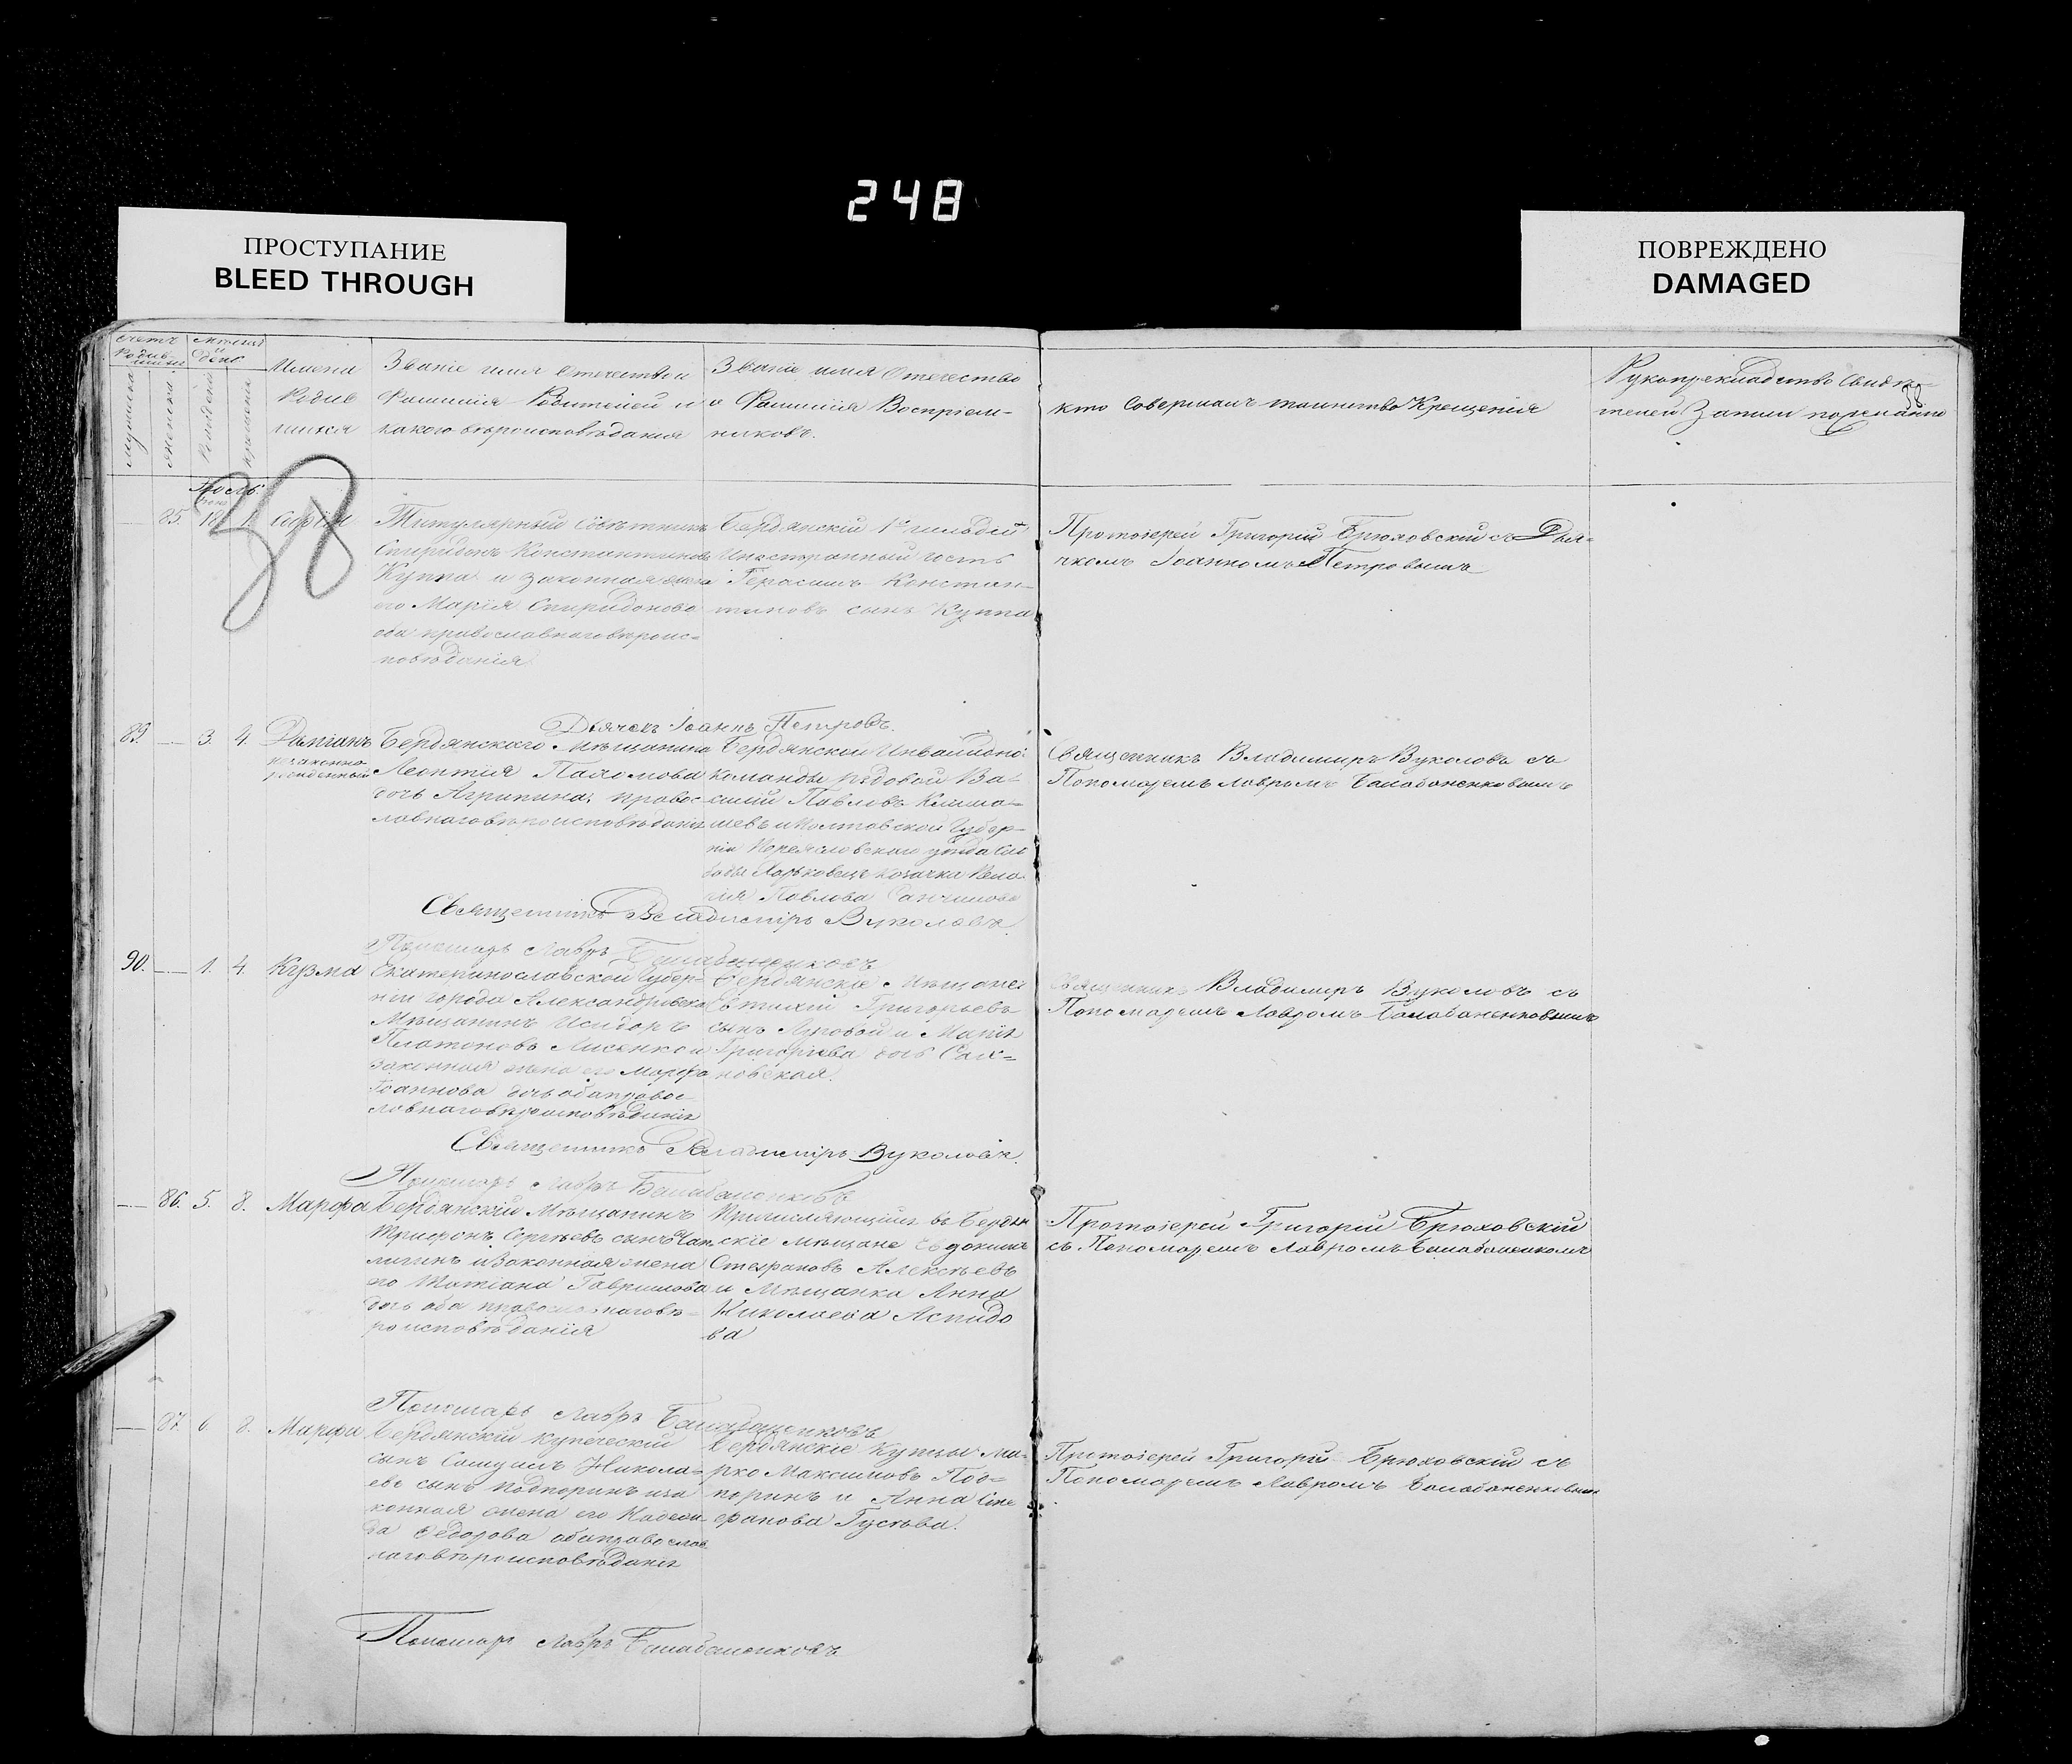 248
ПРОСТУПАНИЕ
BLEED THROUGH
ПОВРЕЖДЕНО
DAMAGED
Счетъ
Родив-
шихся
Мѣсяцъ
и
день
мужеска
женска
Рожденія
крещенія
Имена
Родив
шихся
Званіе имя Отечество и
Фамилія Родителей и
какого вѣроисповѣданія
Званіе имя Отечество
и Фамилія Воспріем-
никовъ.
кто Совершалъ таинство Крещенія
Рукоприкладство Свидѣ-
телей Записи по желанію
38
38
85. 18
Титулярный Совѣтникъ
Спиридонъ Константиновъ
Куппа и законная жена
его Марія Спиридонова
оба православнаго вѣроис-
повѣданія
Бердянскій 1й гильдіи
Иностранный гость
Герасимъ Констан-
тиновъ сынъ Куппа
Протоіерей Григорій Брюховскій съ Дья-
чкомъ Іоанномъ Петровымъ
Дьячекъ Іоаннъ Петровъ.
89. 3. 4. Даміанъ
незаконно
рожденный
Бердянскаго Мѣщанина
Леонтія Пахомова
дочь Агрипина, правос-
лавнаго вѣроисповѣданія
Бердянской Инвалидной
команды рядовой Ва-
силій Павловъ Клима-
шевъ и Полтавской Губер-
ніи Переяславскаго уѣзда
козачка
Павлова
Священникъ Владимиръ Вуколовъ съ
Пономаремъ Лавромъ Балабаненковымъ
Священникъ Владимиръ Вуколовъ.
Пономарь Лавръ Балабаненковъ
90. 1. 4. Кузма
Екатеринославской Губер-
ніи города Александровска
Мѣщанинъ Исидоръ
Платоновъ Лисенко и
законная жена его Марфа
Іоаннова дочь оба правос-
лавнаго вѣроисповѣданія
Бердянскіе Мѣщане
Евтихій Григорьевъ
сынъ Луговой и Марія
Григорьева дочь
новская.
Священникъ Владимиръ Вуколовъ съ
Пономаремъ Лавромъ Балабаненковымъ
Священникъ Владимиръ Вуколовъ.
Пономарь Лавръ Балабаненковъ
86. 5. 8. Марфа
Бердянскій Мѣщанинъ
Трифонъ Сергѣевъ сынъ Чап
лигинъ и Законная жена
его Татіана Гаврилова
дочь оба православнаго вѣ-
роисповѣданія
Причисляющійся въ Бердян
скіе мѣщане Евдокимъ
Стефановъ Алексѣевъ
и Мѣщанка Анна
Николаева Аспидо
ва
Протоіерей Григорій Брюховскій
съ Пономаремъ Лавромъ Балабаненкомъ
Пономарь Лавръ Балабаненковъ
87. 6 8. Марфа
Бердянскій купеческій
сынъ Самуилъ Никола-
евъ сынъ Подпоринъ и за
конная жена его Надеж-
да Федорова оба православ
наго вѣроисповѣданія
Бердянскіе Купцы Ма-
рко Максимовъ Под-
поринъ и Анна Сте
фанова Гусѣва.
Протоіерей Григорій Брюховскій съ
Пономаремъ Лавромъ Балабаненковымъ
Пономарь Лавръ Балабаненковъ